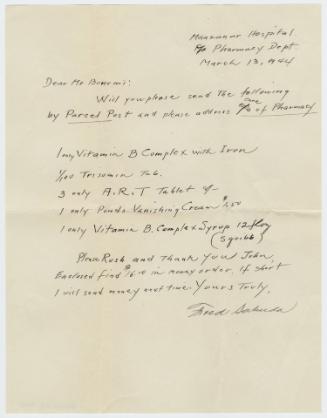 Manzanar Hospital
c/o Pharmacy Dept
March 13, 1944
Dear Mr Bonomi:
Will you please send the following
by Parcel Post and please address c/o care of Pharmacy
1 only Vitamin B Complex with Iron
1/100 Trisomin Tab.
3 only A.R.T Tablet
1 only Ponds Vanishing Cream
1 only Vitamin B. Complex Syrup 12
(Squibb)
Please Rush and Thank You! John.
Enclosed find in money order, if short
I will send money next time. Yours Truly,
Fred